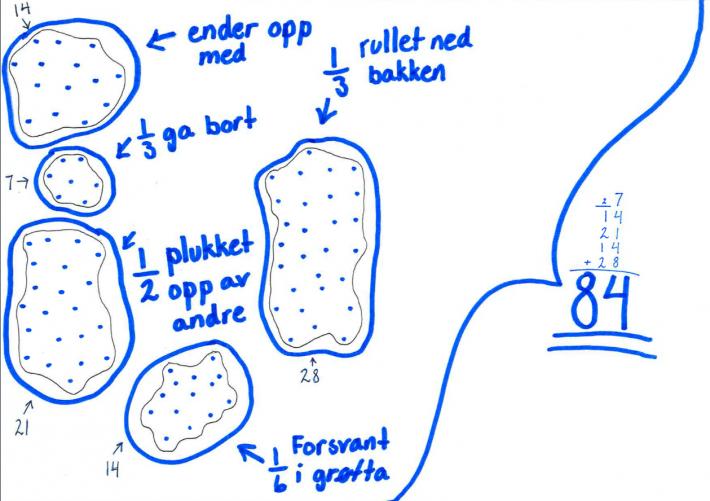 14
ender opp
med
1/3 rullet ned
bakken
1/3 ga bort
7→
1/2 plukket
opp av
andre
28
21
14
1/6 Forsvant
i grøfta
2 7
14
21
14
+ 28
84